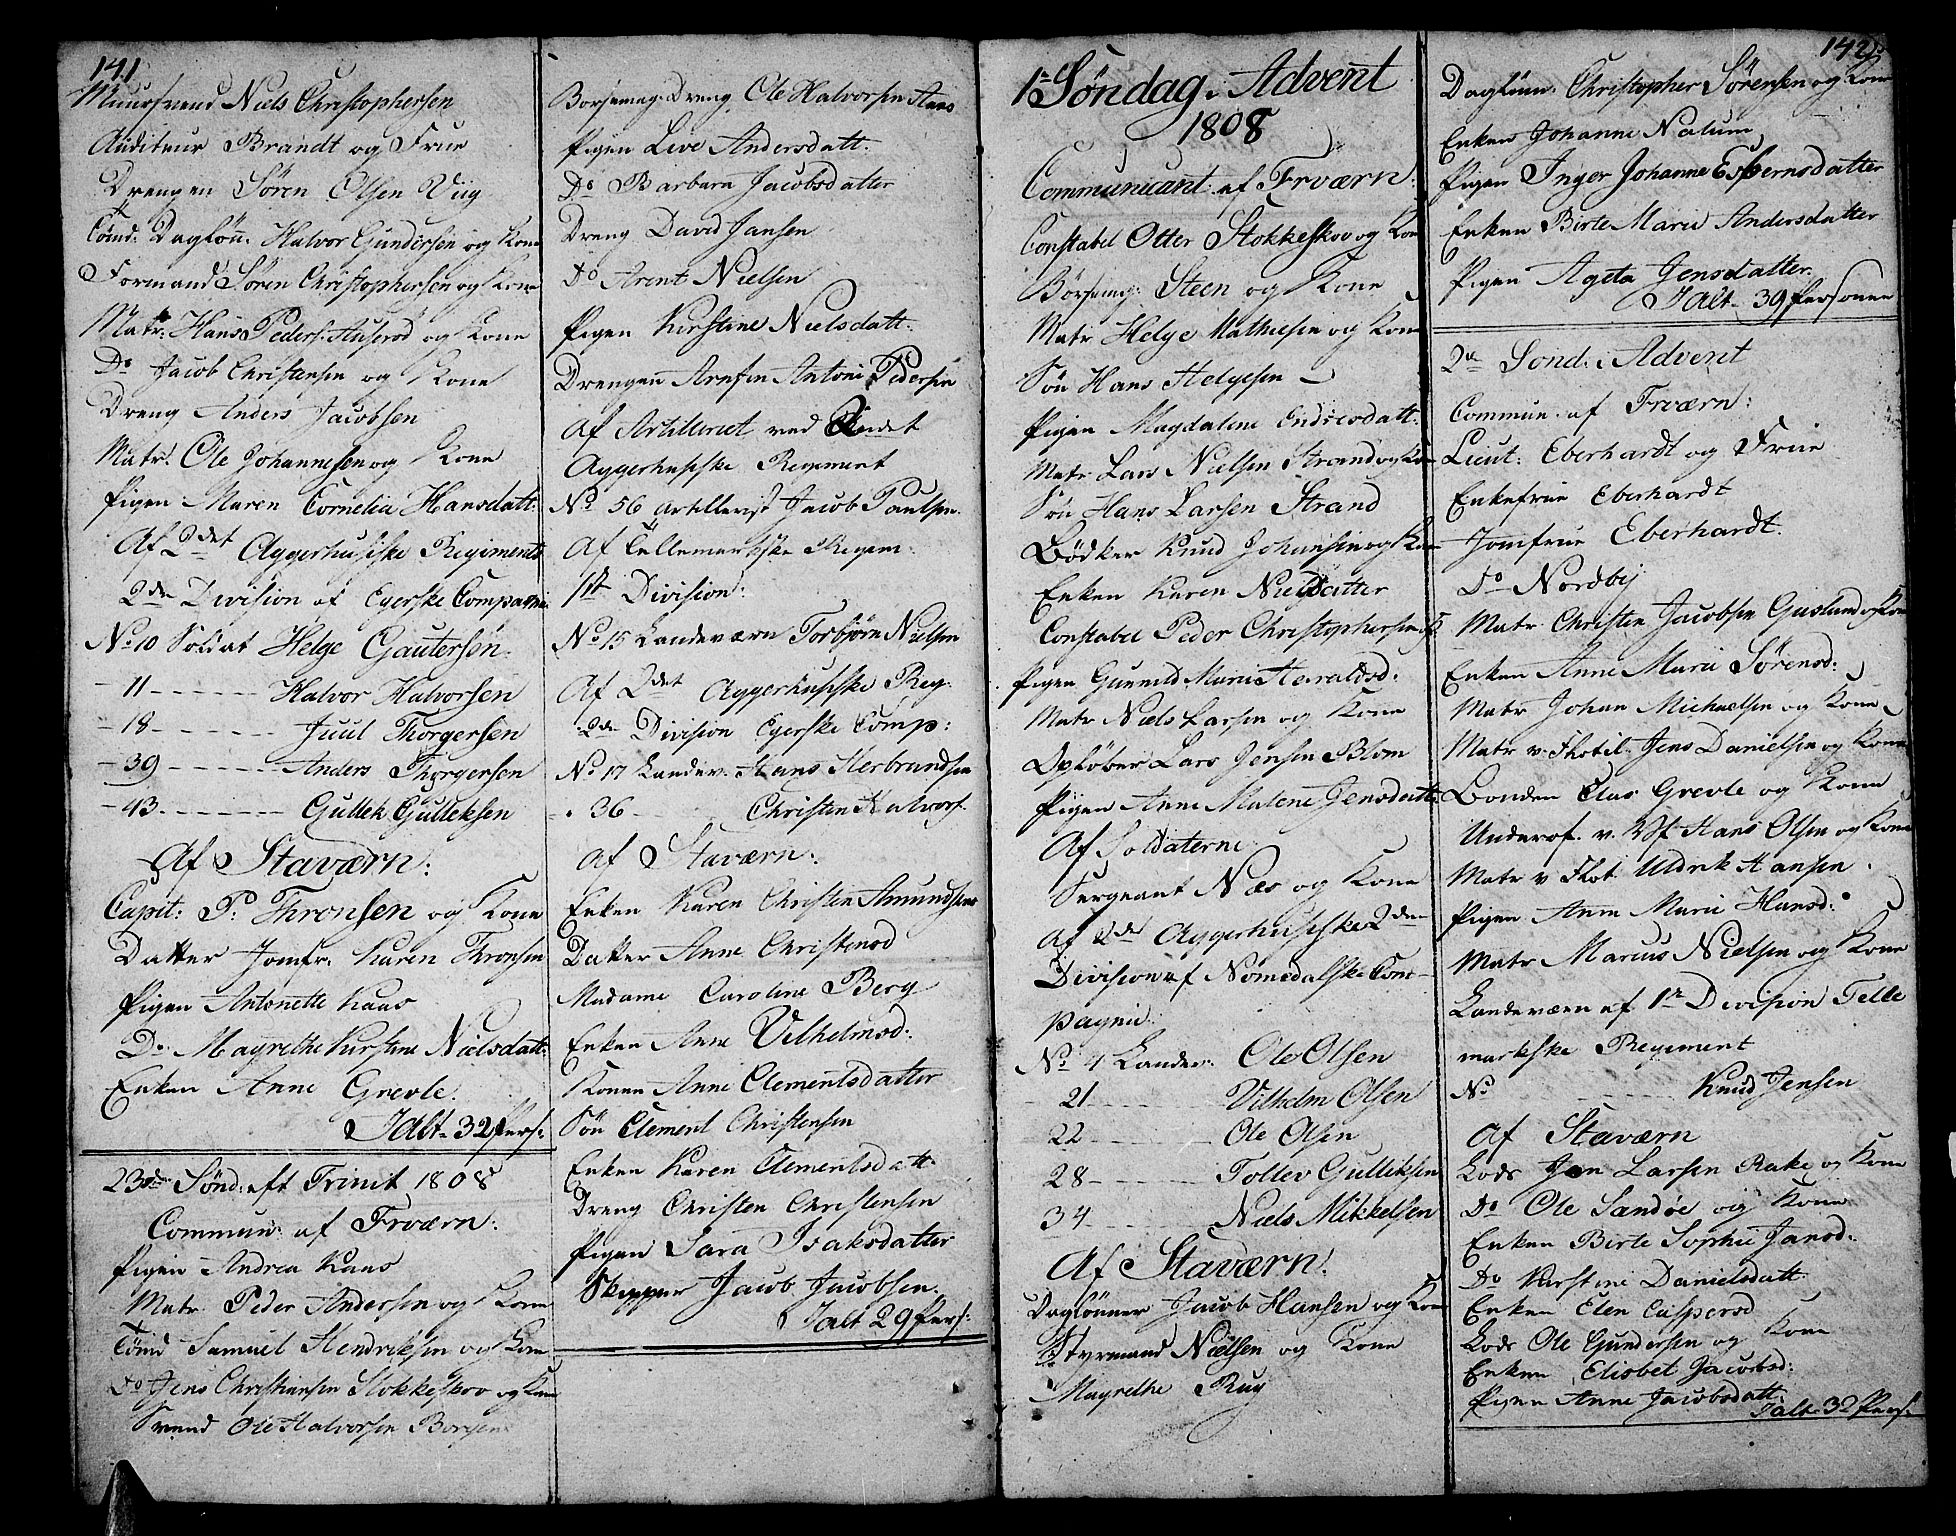 141
Muursvend Niels Christophersen
Auditeur Brandt og Frue
Drengen Søren Olsen Viig
Tømd: Dagløn: Halvor Gundersen og Kone
Formand Søren Christophersen og Kone
Matr: Hans Peders: Auserød og Kone
Do Jacob Christensen og Kone
Dreng Anders Jacobsen
Matr: Ole Johannesen og Kone
Pigen Maren Cornelia Hansdatt:
Af 2det Aggerhusiske Regiments
2den Division af Egerske Compagnie
No 10 Soldat Helge Gautersøn
- 11 - - - Halvor Halvorsen
- 18 - - - Juul Thorgersen
- 39 - - - Anders Thorgersen
- 43 - - - Gullek Gulleksen
Af Staværn:
Capit: P: Thronsen og Kone
Datter Jomfr: Karen Thronsen
Pigen Antonette Kaas
Do Magrethe Kirstine Nielsdatt:
Enken Anne Grevle.
Ialt 32 Pers:
23de Sønd: eft Trinit 1808
Commun: af Frværn:
Pigen Andrea Kaas
Matr Peder Andersen og Kone
Tømd Samuel Hendriksen og Kone
Do Jens Christiansen Stokkeskov og Kone
Svend Ole Halvorsen Borgen
Børsemag: Dreng Ole Halvorsen Aas
Pigen Live Andersdatt:
Do Barbara Jacobsdatter
Dreng David Jansen
Do Arent Nielsen
Pigen Kirstine Nielsdatt:
Drengen Arnfin Antoni Pedersen
Af Artilleriet ved 2det
Aggerhusiske Regiment
No 56 Artillerist Jacob Paulsen
Af Tellemarkske Regem:
1ste Division:
No 15 Landeværn Torbjørn Nielsen
Af 2det Aggerhusiske Reg:
2den Division Egerske Comp:
No 17 Landev: Hans Herbrandsen
- 36 Christen Halvors:
Af Staværn:
Enken Karen Christen Amundsens
Datter Anne Christensd
Madame Caroline Berg
Enken Anne Vilhelmsd:
Konen Anne Clementsdatter
Søn Clement Christensen
Enken Karen Clementsdatt:
Dreng Christen Christensen
Pigen Sara Isaksdatter
Skipper Jacob Jacobsen.
Ialt 29 Pers:
1te Søndag i Advent
1808
Communicant: af Frværn:
Constabel Otter Stokkeskov og Kone
Børsemag: Steen og Kone
Matr Helge Mathiesen og Kone
Søn Hans Helgesen
Pigen Magdalene Endresdatt:
Matr Lars Nielsen Strand og Kone
Søn Hans Larsen Strand
Bødker Knud Johansen og Kone
Enken Karen Nielsdatter
Constabel Peder Christophersen og K
Pigen Gunnild Marie Haraldsd:
Matr Niels Larsen og Kone
Opløber Lars Jensen Blom
Pigen Anne Malene Jensdatt:
Af Soldaterne:
Sergeant Næs og Kone
Af 2det Aggerhusiske 2den
Division af Nomedalske Com-
pagnie:
No 4 Landev: Ole Olsen
21 - - - Vilhelm Olsen
22 - - - Ole Olsen
28 - - - Tollev Gulliksen
34 - - - Niels Mikkelsen
Af Staværn:
Daglønner Jacob Hansen og Kone
Styrmand Nielsen og Kone
Magrethe Ruy
142
Dagløn: Christopher Sørensen og Kone
Enken Johanne Nalum
Pigen Inger Johanne Esbernsdatter
Enken Birte Marie Andersdatter
Pigen Ageta Jensdatter
Ialt 39 Personer
2den Sønd: i Advent
Commun: af Frværn:
Lieut: Eberhardt og Frue
Enkefrue Eberhardt
Jomfrue Eberhardt.
Do Nordby
Matr: Christen Jacobsen Guslund og Kone
Enken Anne Marie Sørensd:
Matr Johan Michaelsen og Kone
Matr v. Flotil: Jens Danielsen og Kone
Bonden Clas Grevle og Kone
Underof. v. Vf Hans Olsen og Kone
Matr v Flot: Uldrik Hansen
Pigen Anne Marie Hansd:
Matr Marcus Nielsen og Kone
Landeværn af 1te Division Telle
markske Regiment
No - - - Knud Jensen
Af Staværn
Lods Jan Larsen Rake og Kone
Do Ole Sandøe og Kone
Enken Birte Sophie Jansd:
Do Kirstine Danielsdatt:
Enken Elen Caspersd
Lods Ole Gundersen og Kone
Enken Elisbet Jacobsd:
Pigen Anne Jacobsdatt:
Ialt 32 Pers: